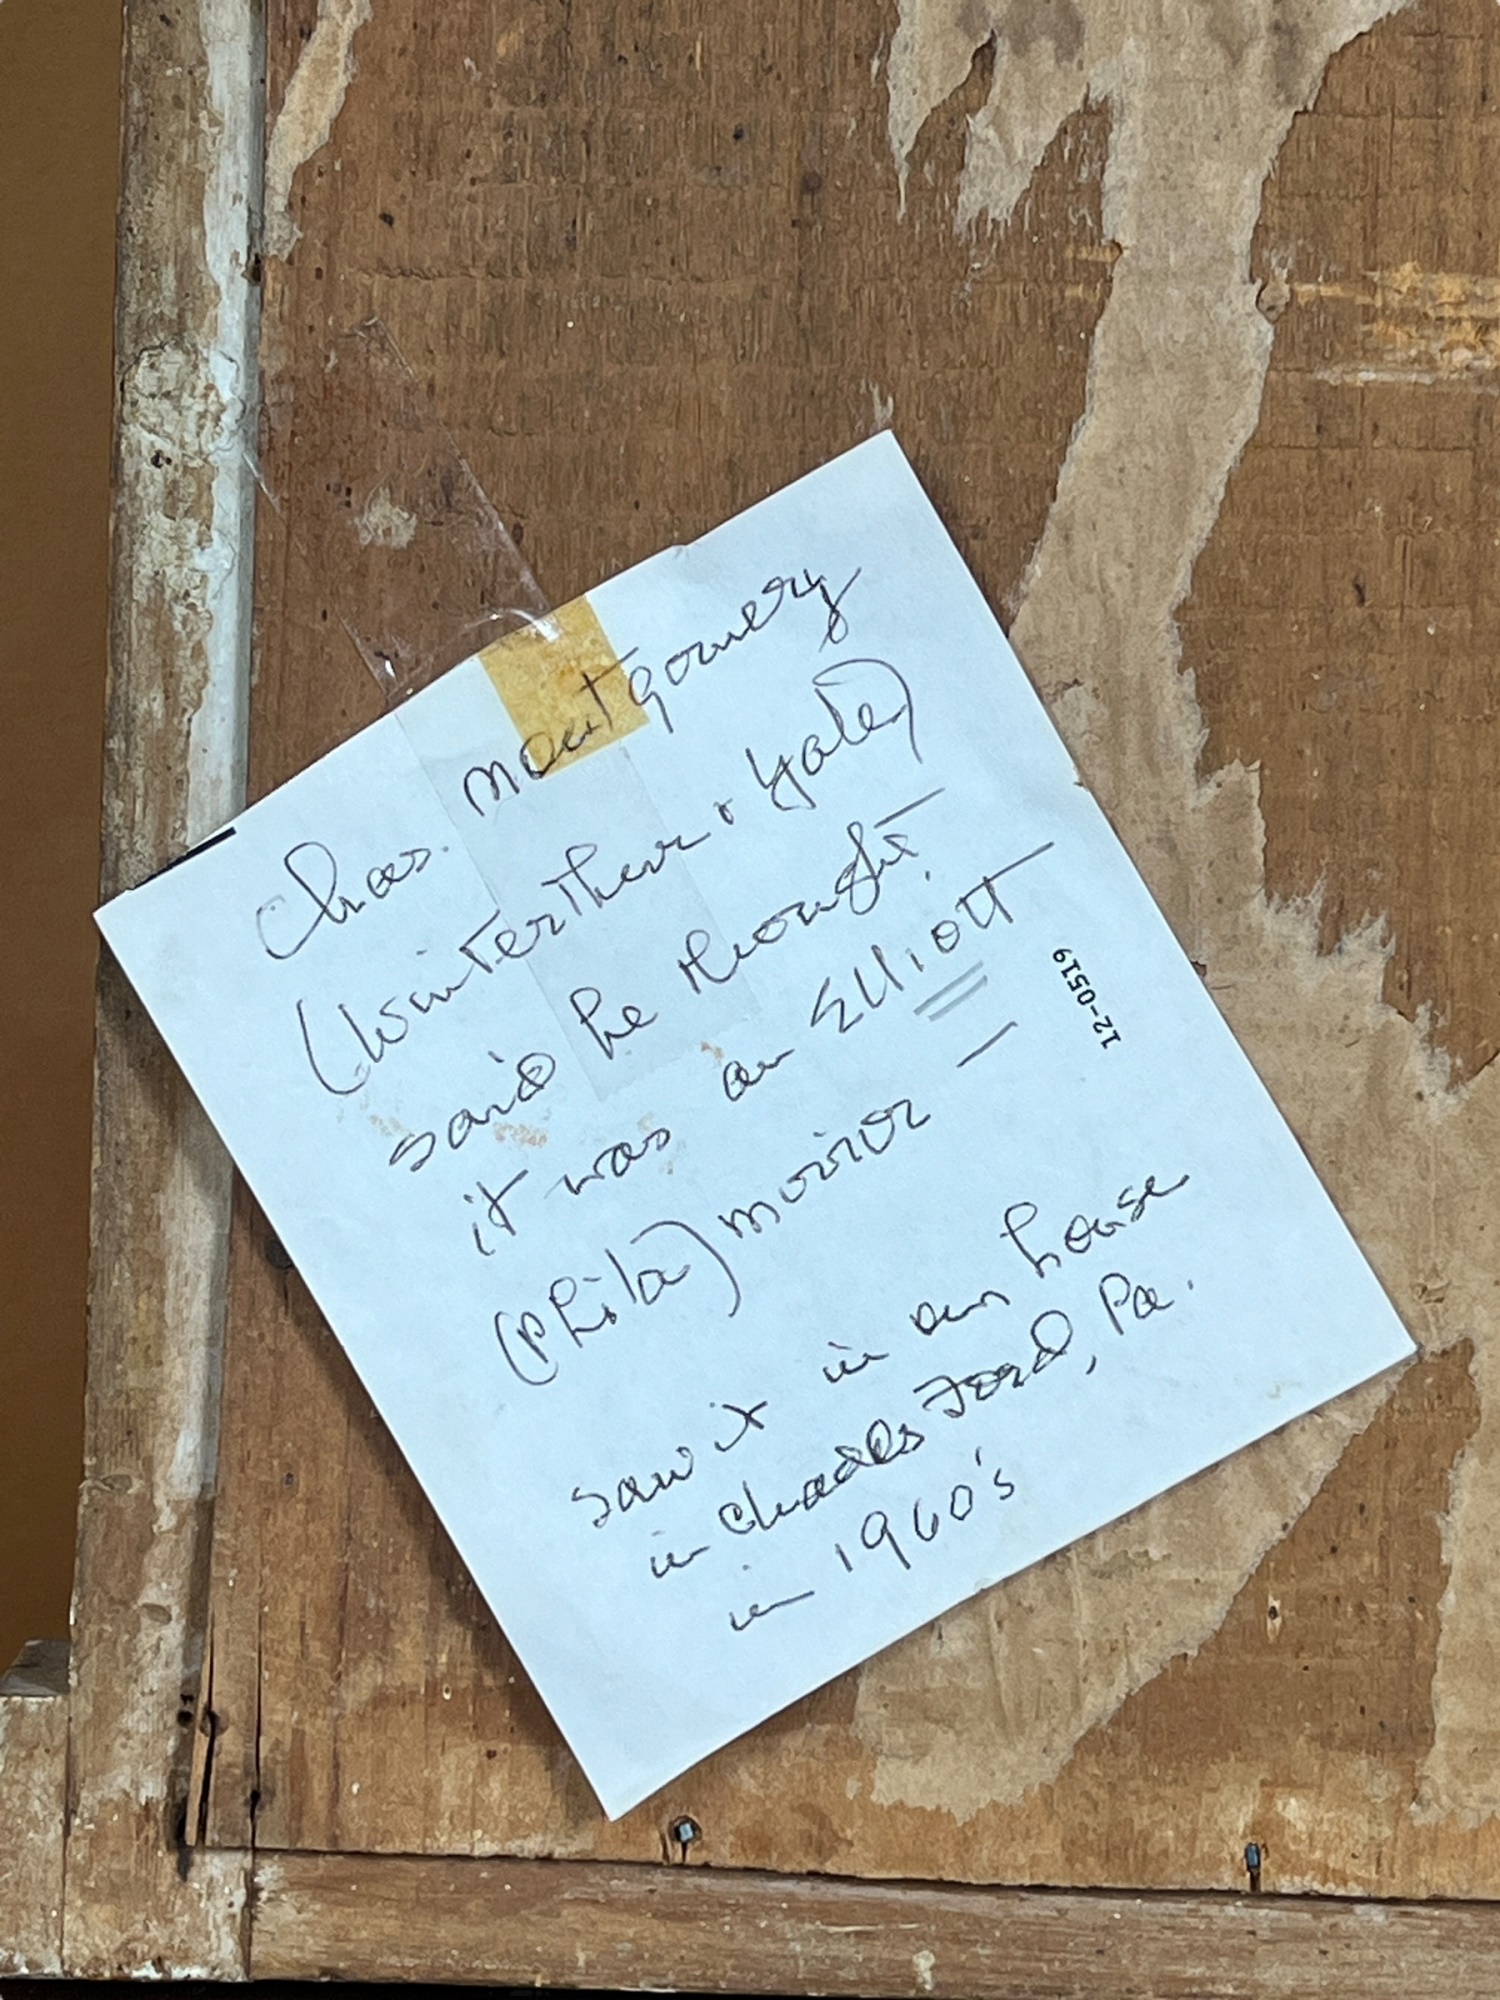 Chas. Montgomery
(Winterthur + Yale)
said he thought
it was an Elliott
(Phila) mirror —
saw it in our house
in Chadds Ford, Pa.
in 1960's
12-0519